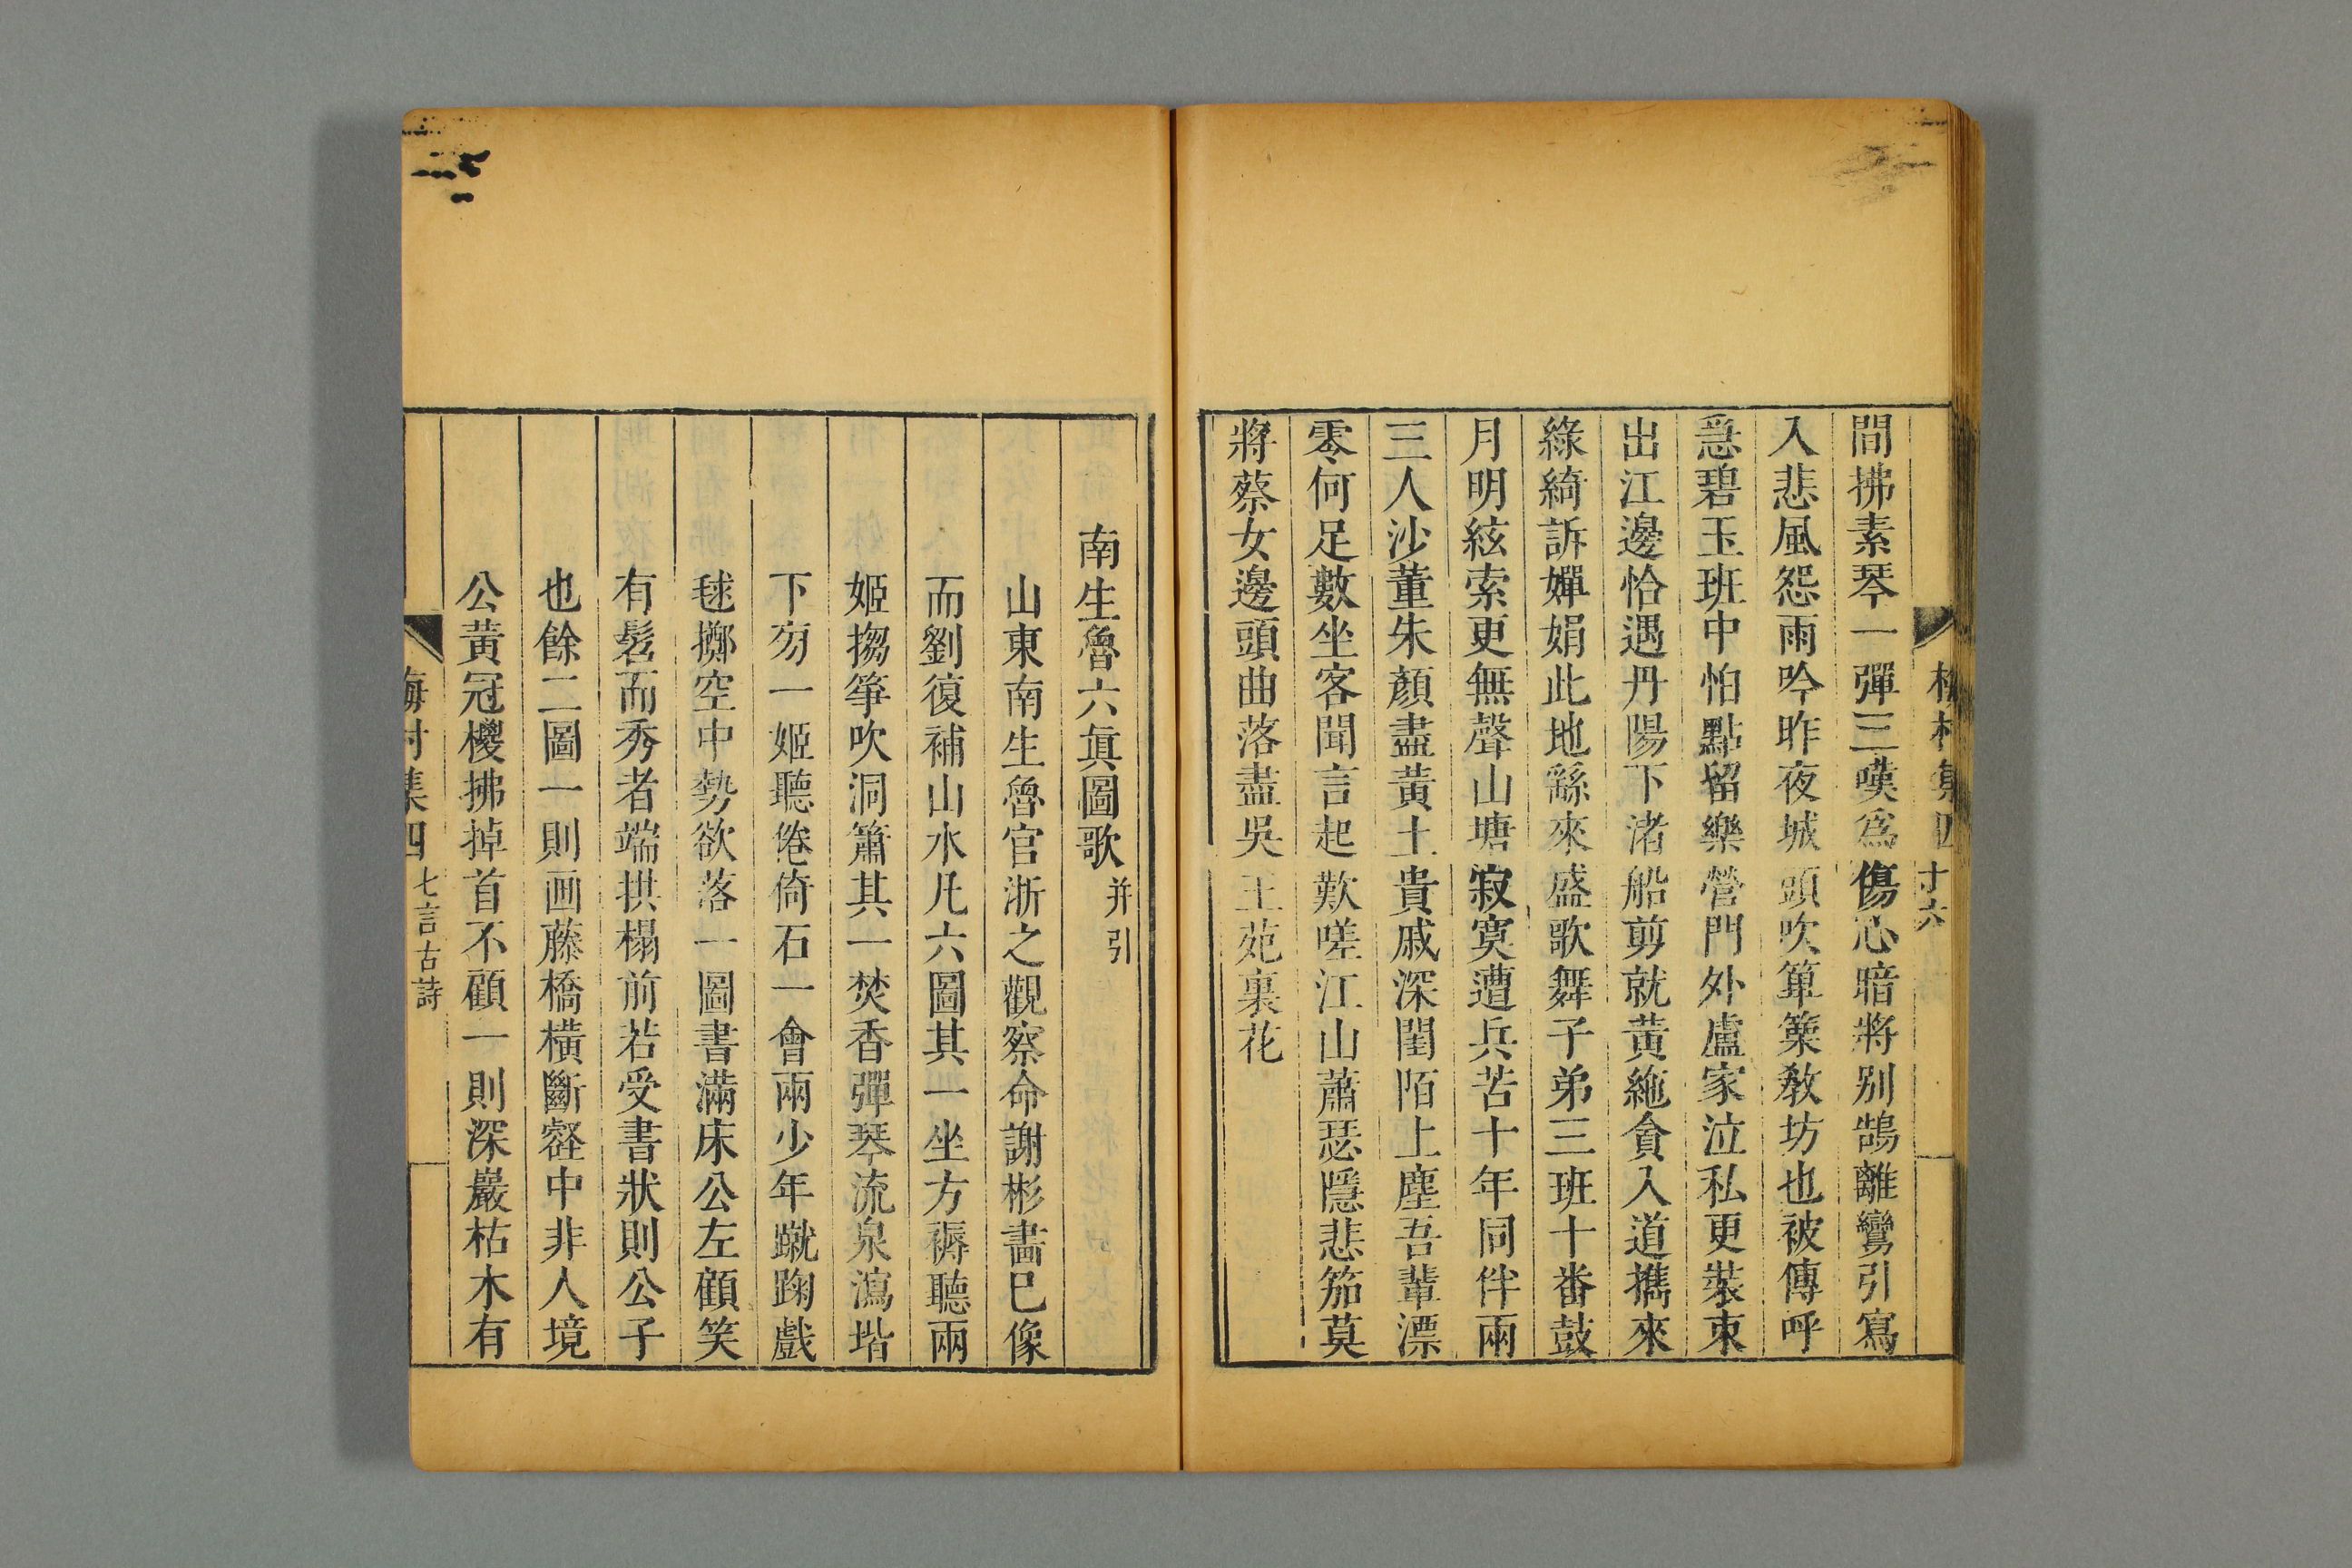 間拂素琴一彈三嘆爲傷心暗將别鵠離鸞引寫
入悲風怨雨吟昨夜城頭吹篳篥教坊也被傳呼
急碧玉班中怕點留樂營門外盧家泣私更裝束
出江邊恰遇丹陽下渚船剪就黃絁貪入道攜來
綠綺訴嬋娟此地繇來盛歌舞子弟三班十番鼓
月明絃索更無聲山塘寂寞遭兵苦十年同伴兩
三人沙董朱顏盡黃土貴戚深閨陌上塵吾輩漂
零何足數坐客聞言起歎嗟江山蕭瑟隱悲笳莫
將蔡女邊頭曲落盡吳王苑裏花
南生魯六眞圖歌 并引
山東南生魯官浙之觀察命謝彬畵巳像
而劉復補山水凡六圖其一坐方褥聽兩
姬搊箏吹洞簫其一焚香彈琴流泉瀉堦
下旁一姬聽倦倚石一會兩少年蹴踘戲
毬擲空中勢欲落一圖書滿床公左顧笑
有髫而秀者端拱榻前若受書狀則公子
也餘二圖一則画藤橋橫斷壑中非人境
公黃冠櫻拂掉首不顧一則深巖枯木有
梅村集四 七言古詩